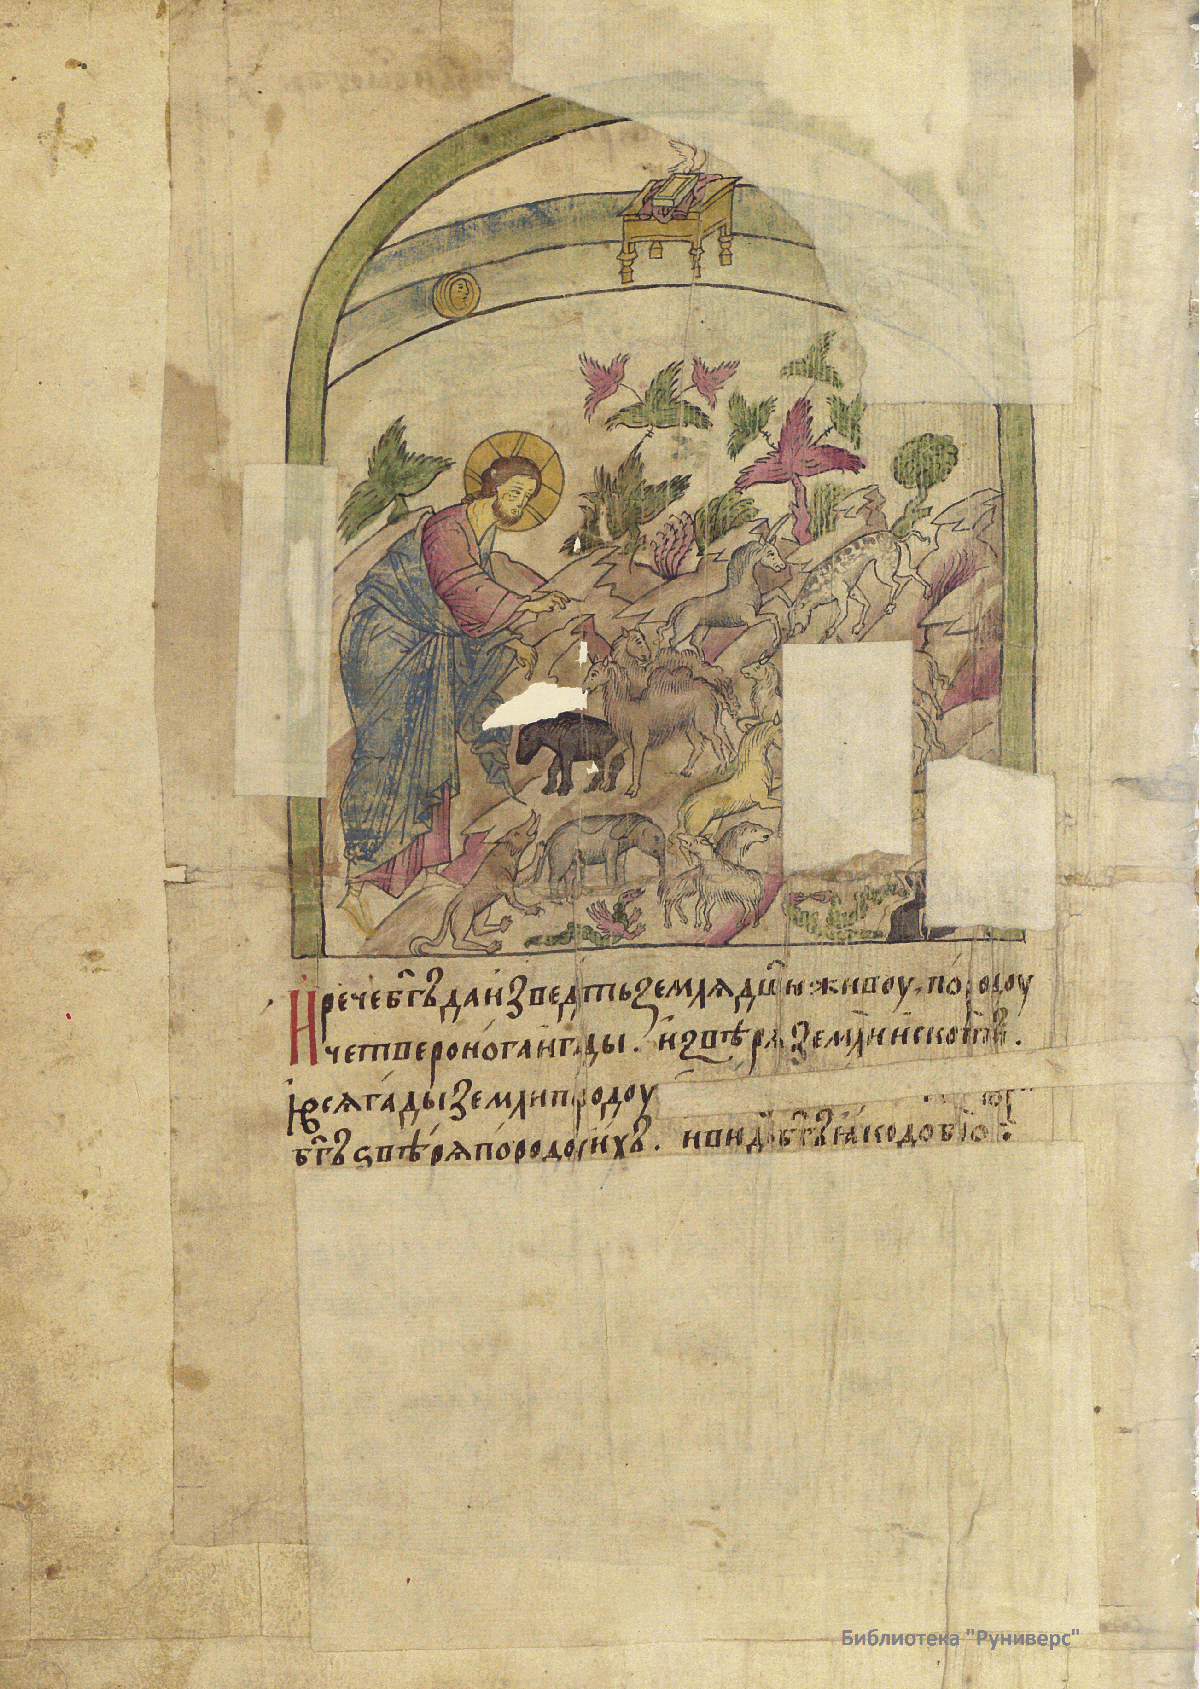 И рече бг҃ъ да изведть земля дш҃ю живоу, по родоу
четвероногаи гады. и звѣря земли и скоти.
И вся гады земли по родоу
бг҃ъ ѕвѣря по родоу ихъ. и видѣ бг҃ъ ꙗко добро:
Библиотека "Руниверс"